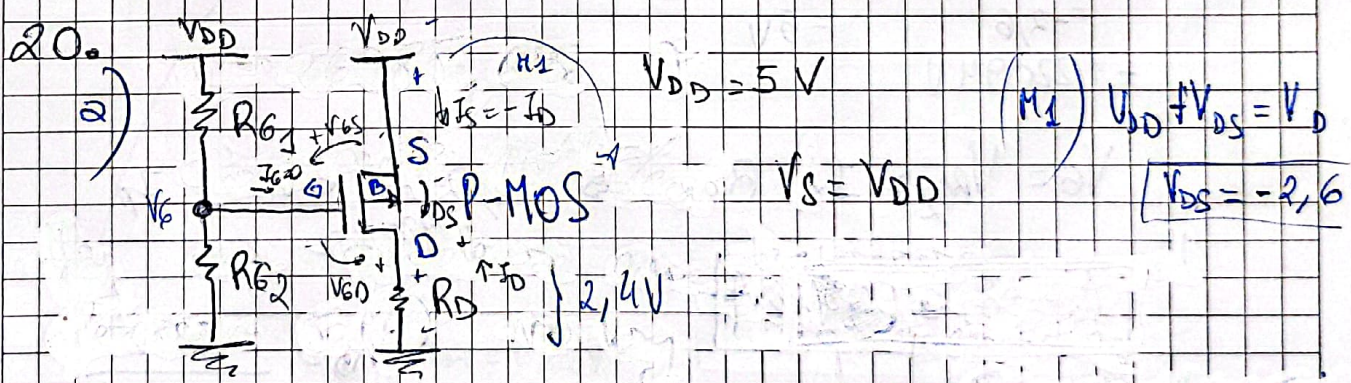 20.
a)
VDD
VDD
RG1
IG=0
VG
RG2
+ VGS
G
B
S
D
VGD
M1
IS = -ID
VDS
P-MOS
RD
ID
} 2,4V
VDD = 5 V
VS = VDD
M1) VDD + VDS = VD
VDS = -2,6